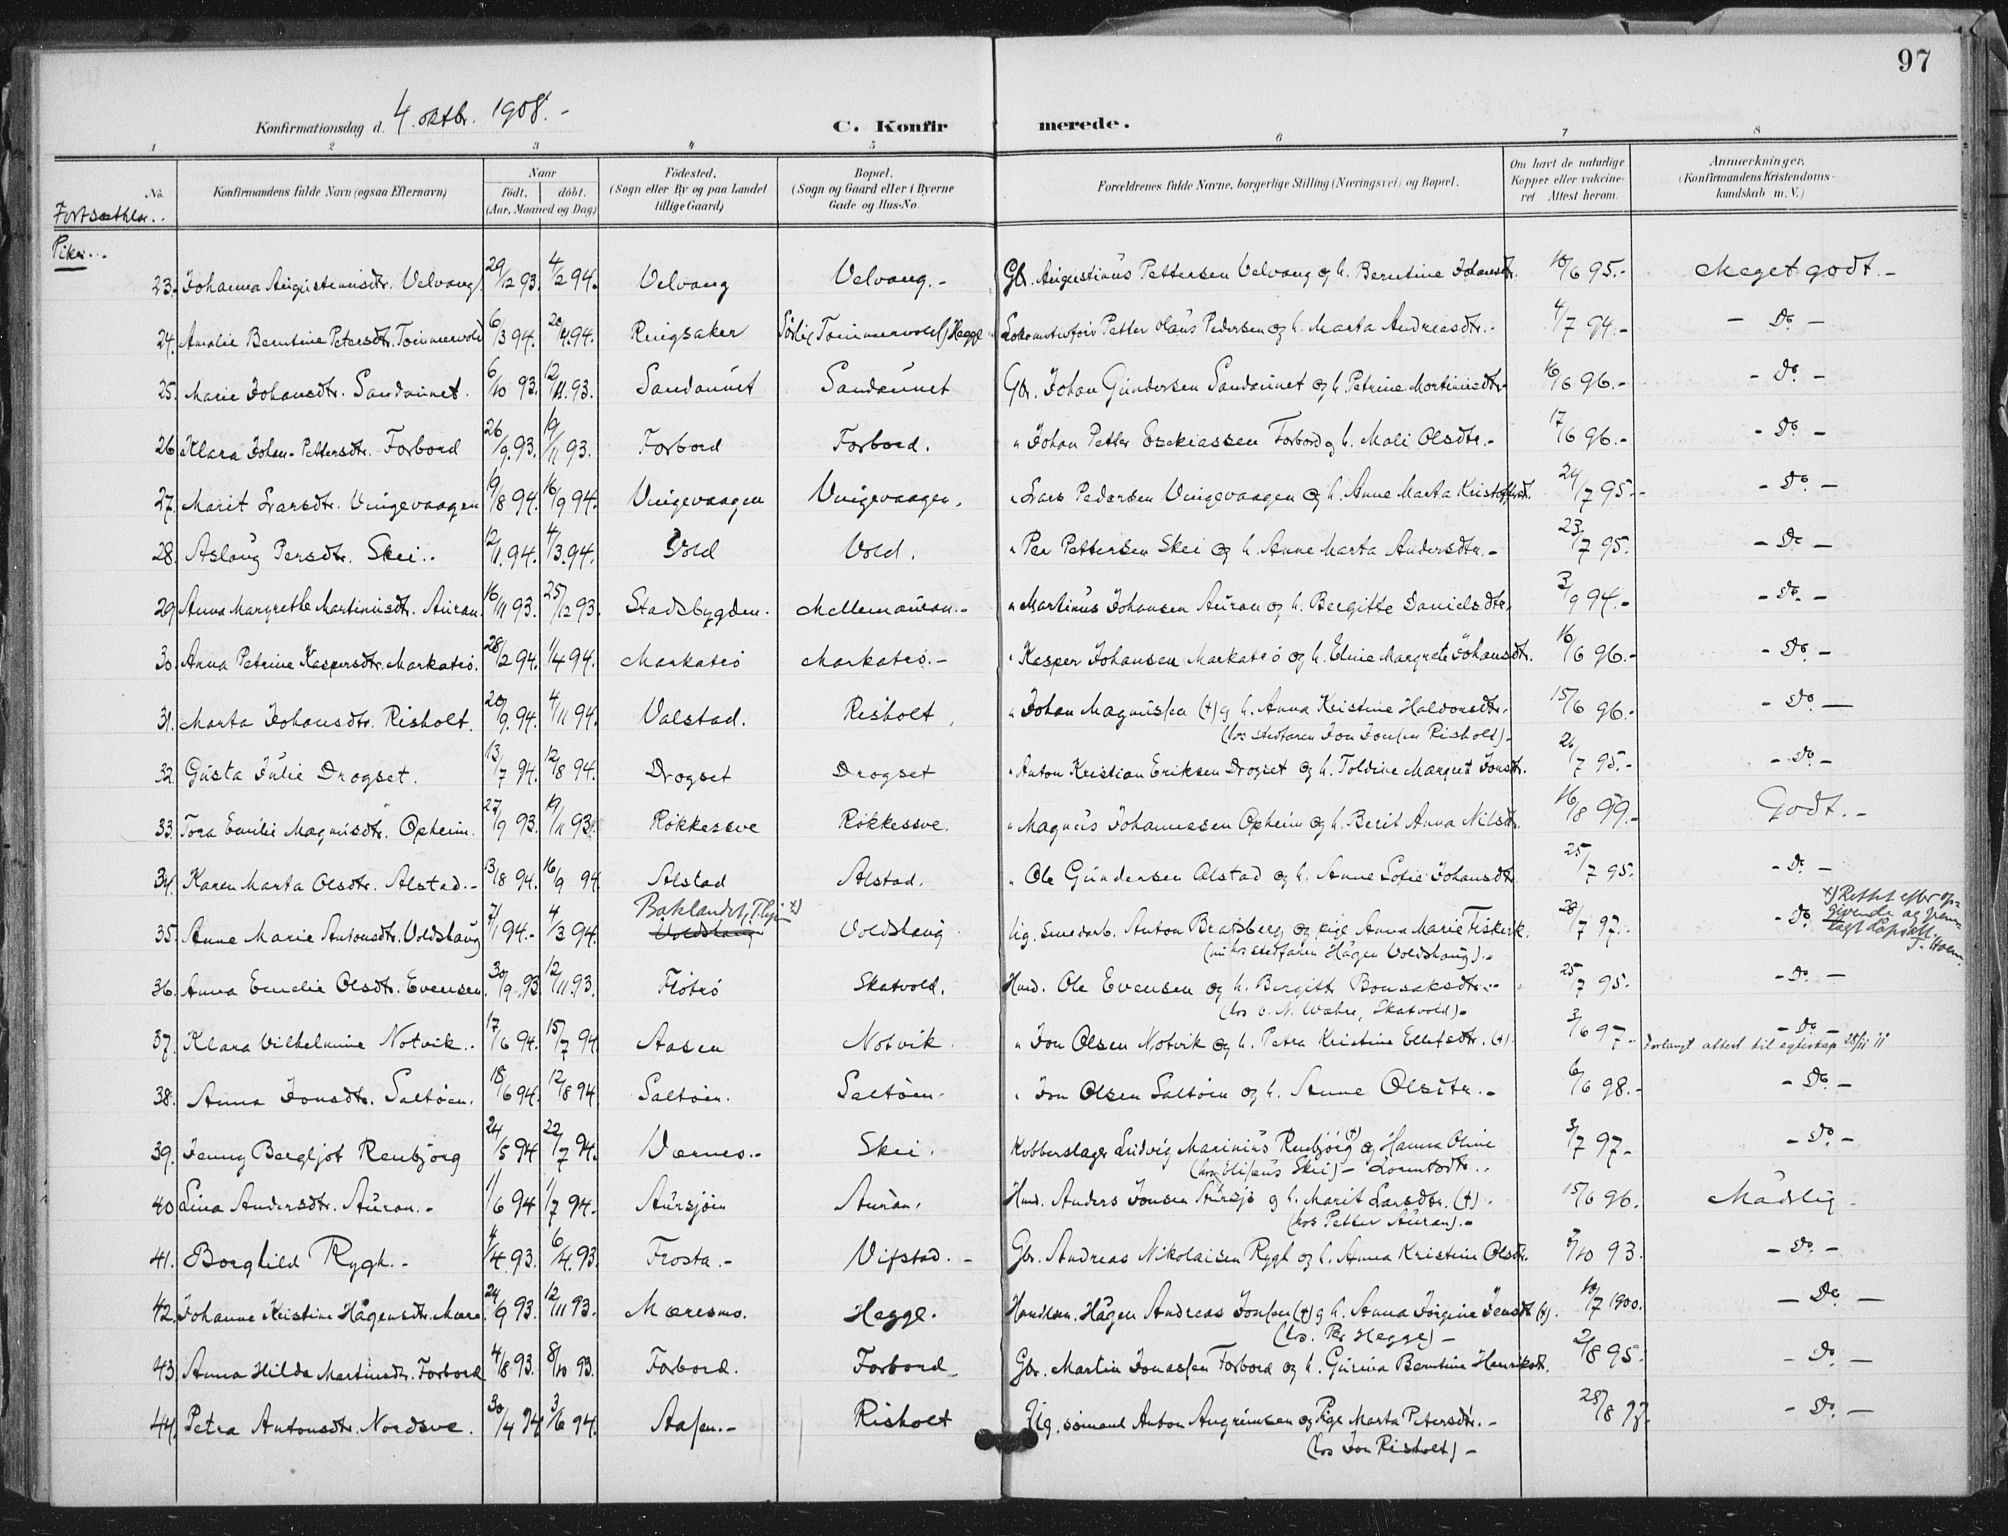 97
Konfirmationsdag d. 4. oktbr. 1908. -
C. Konfirmerede.
1 2 3 4 5 6 7 8
No. Konfirmandens fulde Navn (ogsaa Efternavn)
Naar født. døbt. (Aar, Maaned og Dag)
Fødested. (Sogn eller By og paa Landet tillige Gaard)
Bopæl. (Sogn og Gaard eller i Byerne Gade og Hus-No.
Forældrenes fulde Navne, borgerlige Stilling (Næringsvei) og Bopæl.
Om havt de naturlige Kopper eller vakcineret. Attest herom.
Anmærkninger. (Konfirmandens Kristendomskundskab m. V.)
Fortsættelse..
Piker..
23. Johanna Augustinusdtr. Velvang 29/12 93. 4/2 94. Velvang Velvang. - Gbr. Augustinus Pettersen Velvang og h. Berntine Johansdtr. 10/6 95. - Meget godt. -
24. Amalie Berntine Petersdtr. Tømmervold 6/3 94. 4.94. Ringsaker Tømmervold Hegge Lokomotivfører Petter Olaus Pedersen og h. Marta Andreasdtr. - 4/7 94. - - Do -
25. Marie Johansdtr. Sandaunet. 6/10 93. 12/11.93. Sandaunet Sandaunet Gbr. Johan Gundersen Sandaunet og h. Petrine Mortinusdtr 16/6 96. - - Do. -
26 Klara Johan-Pettersdtr. Forbord 26/9.93. 19/11 93. Forbord Forbord. " Johan Petter Esekiassen Forbord og h. Mali Olsdtr. - 17/6 96. - - Do -
27. Marit Larsdtr. Vingevaagen 19/8 94. 16/9 94. Vingevaagen Vingevaagen. " Lars Pedersen Vingevaagen og h. Anne Marta Kristoffersdt. 24/7 95. - - Do -
28. Aslaug Persdtr. Skei.. 12/1.94. 4/3.94. Vold Vold. " Per Pettersen Skei og h. Anne Marta Andersdtr. - 23/7 95. - Do -
29. Anna Margrethe Martinusdtr. Auran. 16/11 93. 25/12 93. Stadsbygden. Mellemauran. - " Martinus Johansen Auran og h. Bergitte Danielsdtr. 3/9 94. - - Do. -
30. Anna Petrine Kaspersdtr. Markatrø. 28/2 94. 1/4 94. Markatrø Markatrø. - " Kasper Johansen Markatrø og h. Eline Margrete Johansdtr. 16/6 96. - - Do. -
31. Marta Johansdtr. Risholt. 20/9.94. 4/11 94. Valstad. Risholt. " Johan Magnussen (†) og h. Anna Kristine Haldorsdtr. 15/6 96. - - Do. -
(hos stedfaren Jon Jonsen Risholt). -
32. Gusta Julie Drogset. 13/7 94. 12/8 94. Drogset Drogset " Anton Kristian Eriksen Drogset og h. Toldine Margret Jonsdtr. 26/7 95. - - Do. -
33. Tora Emilie Magnusdtr. Opheim. 27/9 93. 19/11 93. Røkkessve Røkkessve. " Magnus Johannesen Opheim og h. Berit Anna Nilsdtr. 16/8 99. - Godt. -
34. Karen Marta Olsdtr. Alstad. - 13/8 94. 16/9 94 Alstad Alstad. " Ole Gundersen Alstad og h. Anne Sofie Johansdtr 25/7 95. - Do -
35. Anne Marie Antonsdtr. Voldshaug 7/1 94. - 4/3 94. Baklandet, T.hjem x) Voldshaug Voldshaug Ug. Smedarb. Anton Bratsberg og pige Anna Marie Fiskvik. 28/7 97. - - Do x) Rettet efter opgivende og fremlagt Dåpsatt. J. Holm.
(nu hos stedfaren Hågen Voldshaug). -
36. Anna Emelie Olsdtr. Evensen. 30/9.93 12/11.93. Fløtrø Skatvold. Husm. Ole Evensen og h. Bergitte Bonsaksdtr. - 25/7 95. - Do. -
(hos O. N. Wæhre, Skatvold). -
37. Klara Vilhelmine Notvik.. 17/6 94. 15/7 94. Aasen Notvik. " Jon Olsen Notvik og h. Petra Kristine Ellefsdtr. (†) 3/6 97. - - Do -
Forlangt attest til egteskap 28/11 11
38. Anna Jonsdtr. Saltøen. 18/6 94. 12/8 94. Saltøen. Saltøen. " Jon Olsen Saltøen og h. Anne Olsdtr. - 6/6 98. - - Do. -
39. Jenny Bergljot Renbjørg 24/5 94 22/7 94. Værnes. - Skei. Kobberslager Ludvig Marinius Renbjørg (†) og Hanna Oline Lorntsdtr.. 3/7 97. - - Do. -
(hos Elisæus Skei) -
40 Lina Andersdtr. Auran. - 1/6 94 1/7 94. - Aursjøen Auran. Husm. Anders Jonsen Aursjø og h. Marit Larsdtr. (†). 15/6 96. Mådelig -
(hos Petter Auran). -
41. Borghild Rygh. - 4/4.93. 6/4.93. Frosta. - Vifstad. - Gbr. Andreas Nikolaisen Rygh og h. Anna Kristine Olsdtr. /10 93. - Do. -
42. Johanne Kristine Hågensdtr. Mære 24/9 93. 12/11 93. Hegge. Handlsm. Hågen Andreas Jonsen (†) og h. Anna Jørgine Jensdt (†). 10/7 1900. - Do. -
(hos. Per Hegge) -
43. Anna Hilda Martinsdtr. Forbord 4/8 93. 8/10 93. Forbord. Forbord Gbr. Martin Jonassen Forbord og h. Gurina Berntine Henriksdt. 2/8 95. - Do. -
44. Petra Antonsdtr. Nordsve. 30/4 94 3/6 94. Aasen. - Risholt Ug. sømand Anton Angrimsen og Pige Marta Petersdtr. - 28/8 97. - Do. -
(hos Jon Risholt) -